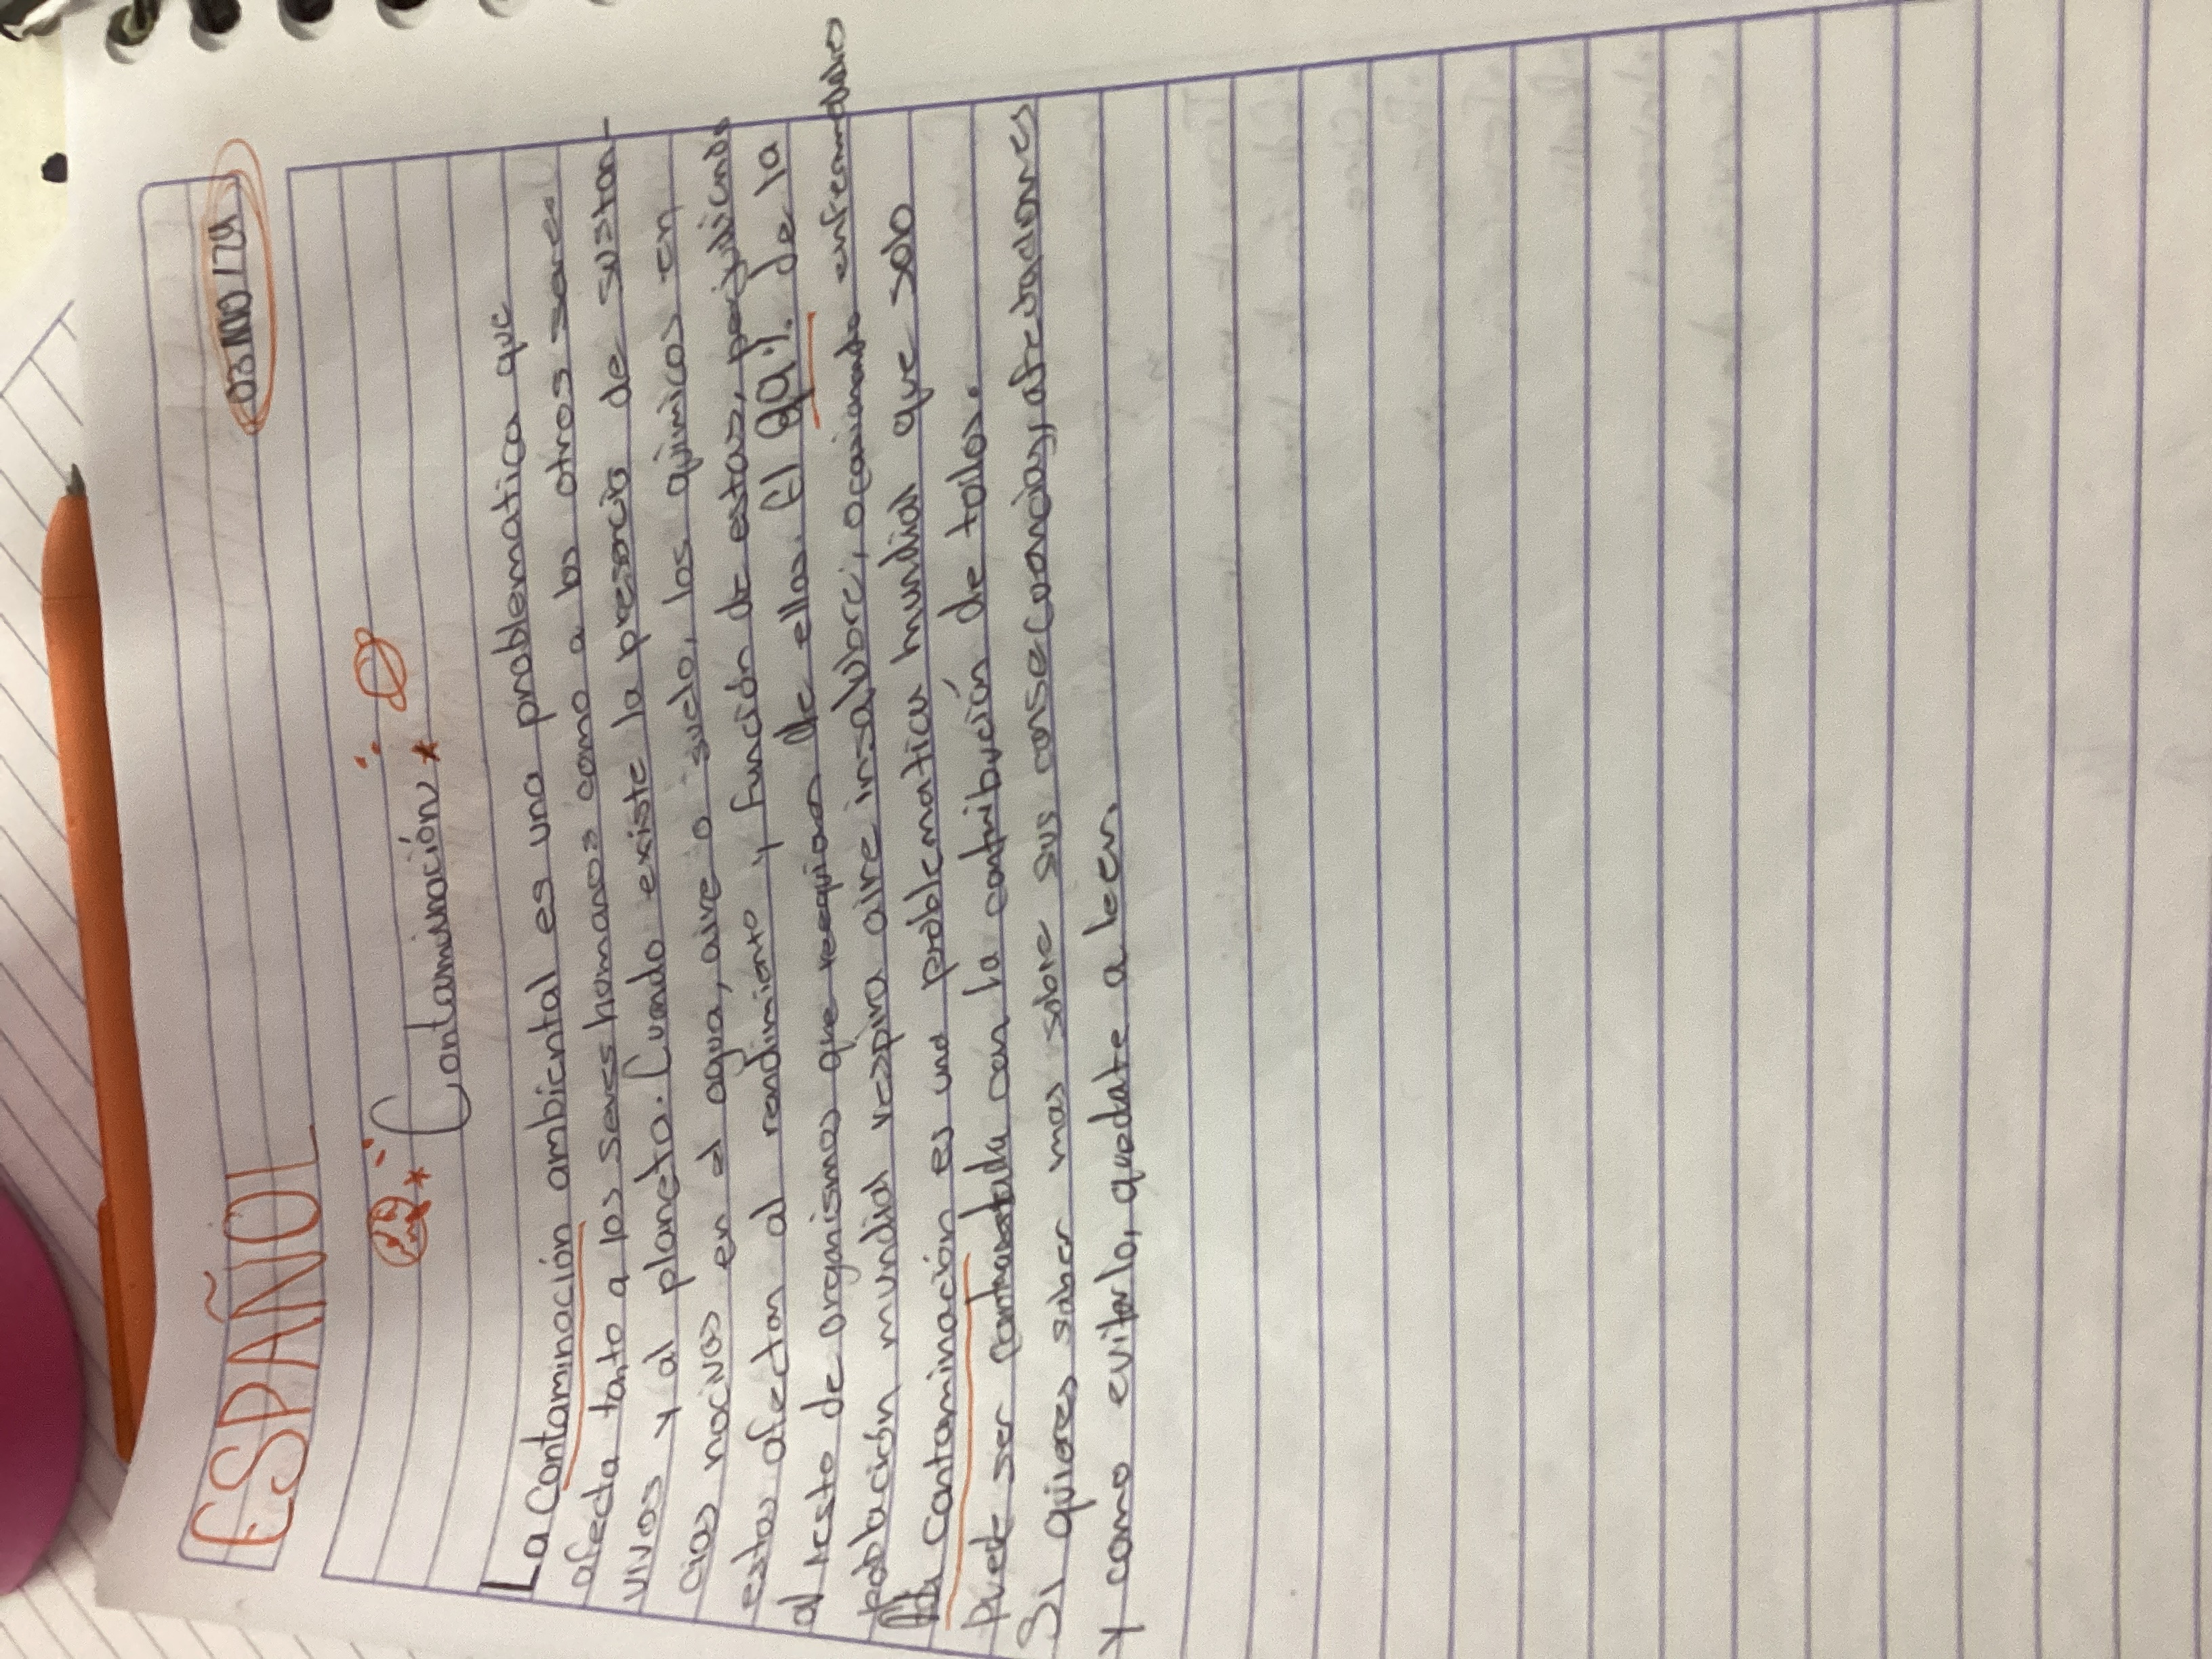 ESPAÑOL
03 NOV 24
Contaminación
La Contaminación ambiental es una problematica que
afecta tanto a los seres homanos como a los otros seres
vivos y al planeta. Cuando existe la presencia de sustan-
cias nocivas en el agua, aire o suelo, los químicos en
estas afectan al rendimiento y función de estas, perjudicando
al resto de organismos que requieran de ellos. El 99% de la
población mundial respira aire insalubre, ocacionando enfermedades
La contaminación es una problematica mundial que solo
puede ser contrarestada con la contribución de todos.
Si quieres saber mas sobre sus consecuencias, afectaciones
y como evitarlo, quedate a leer.